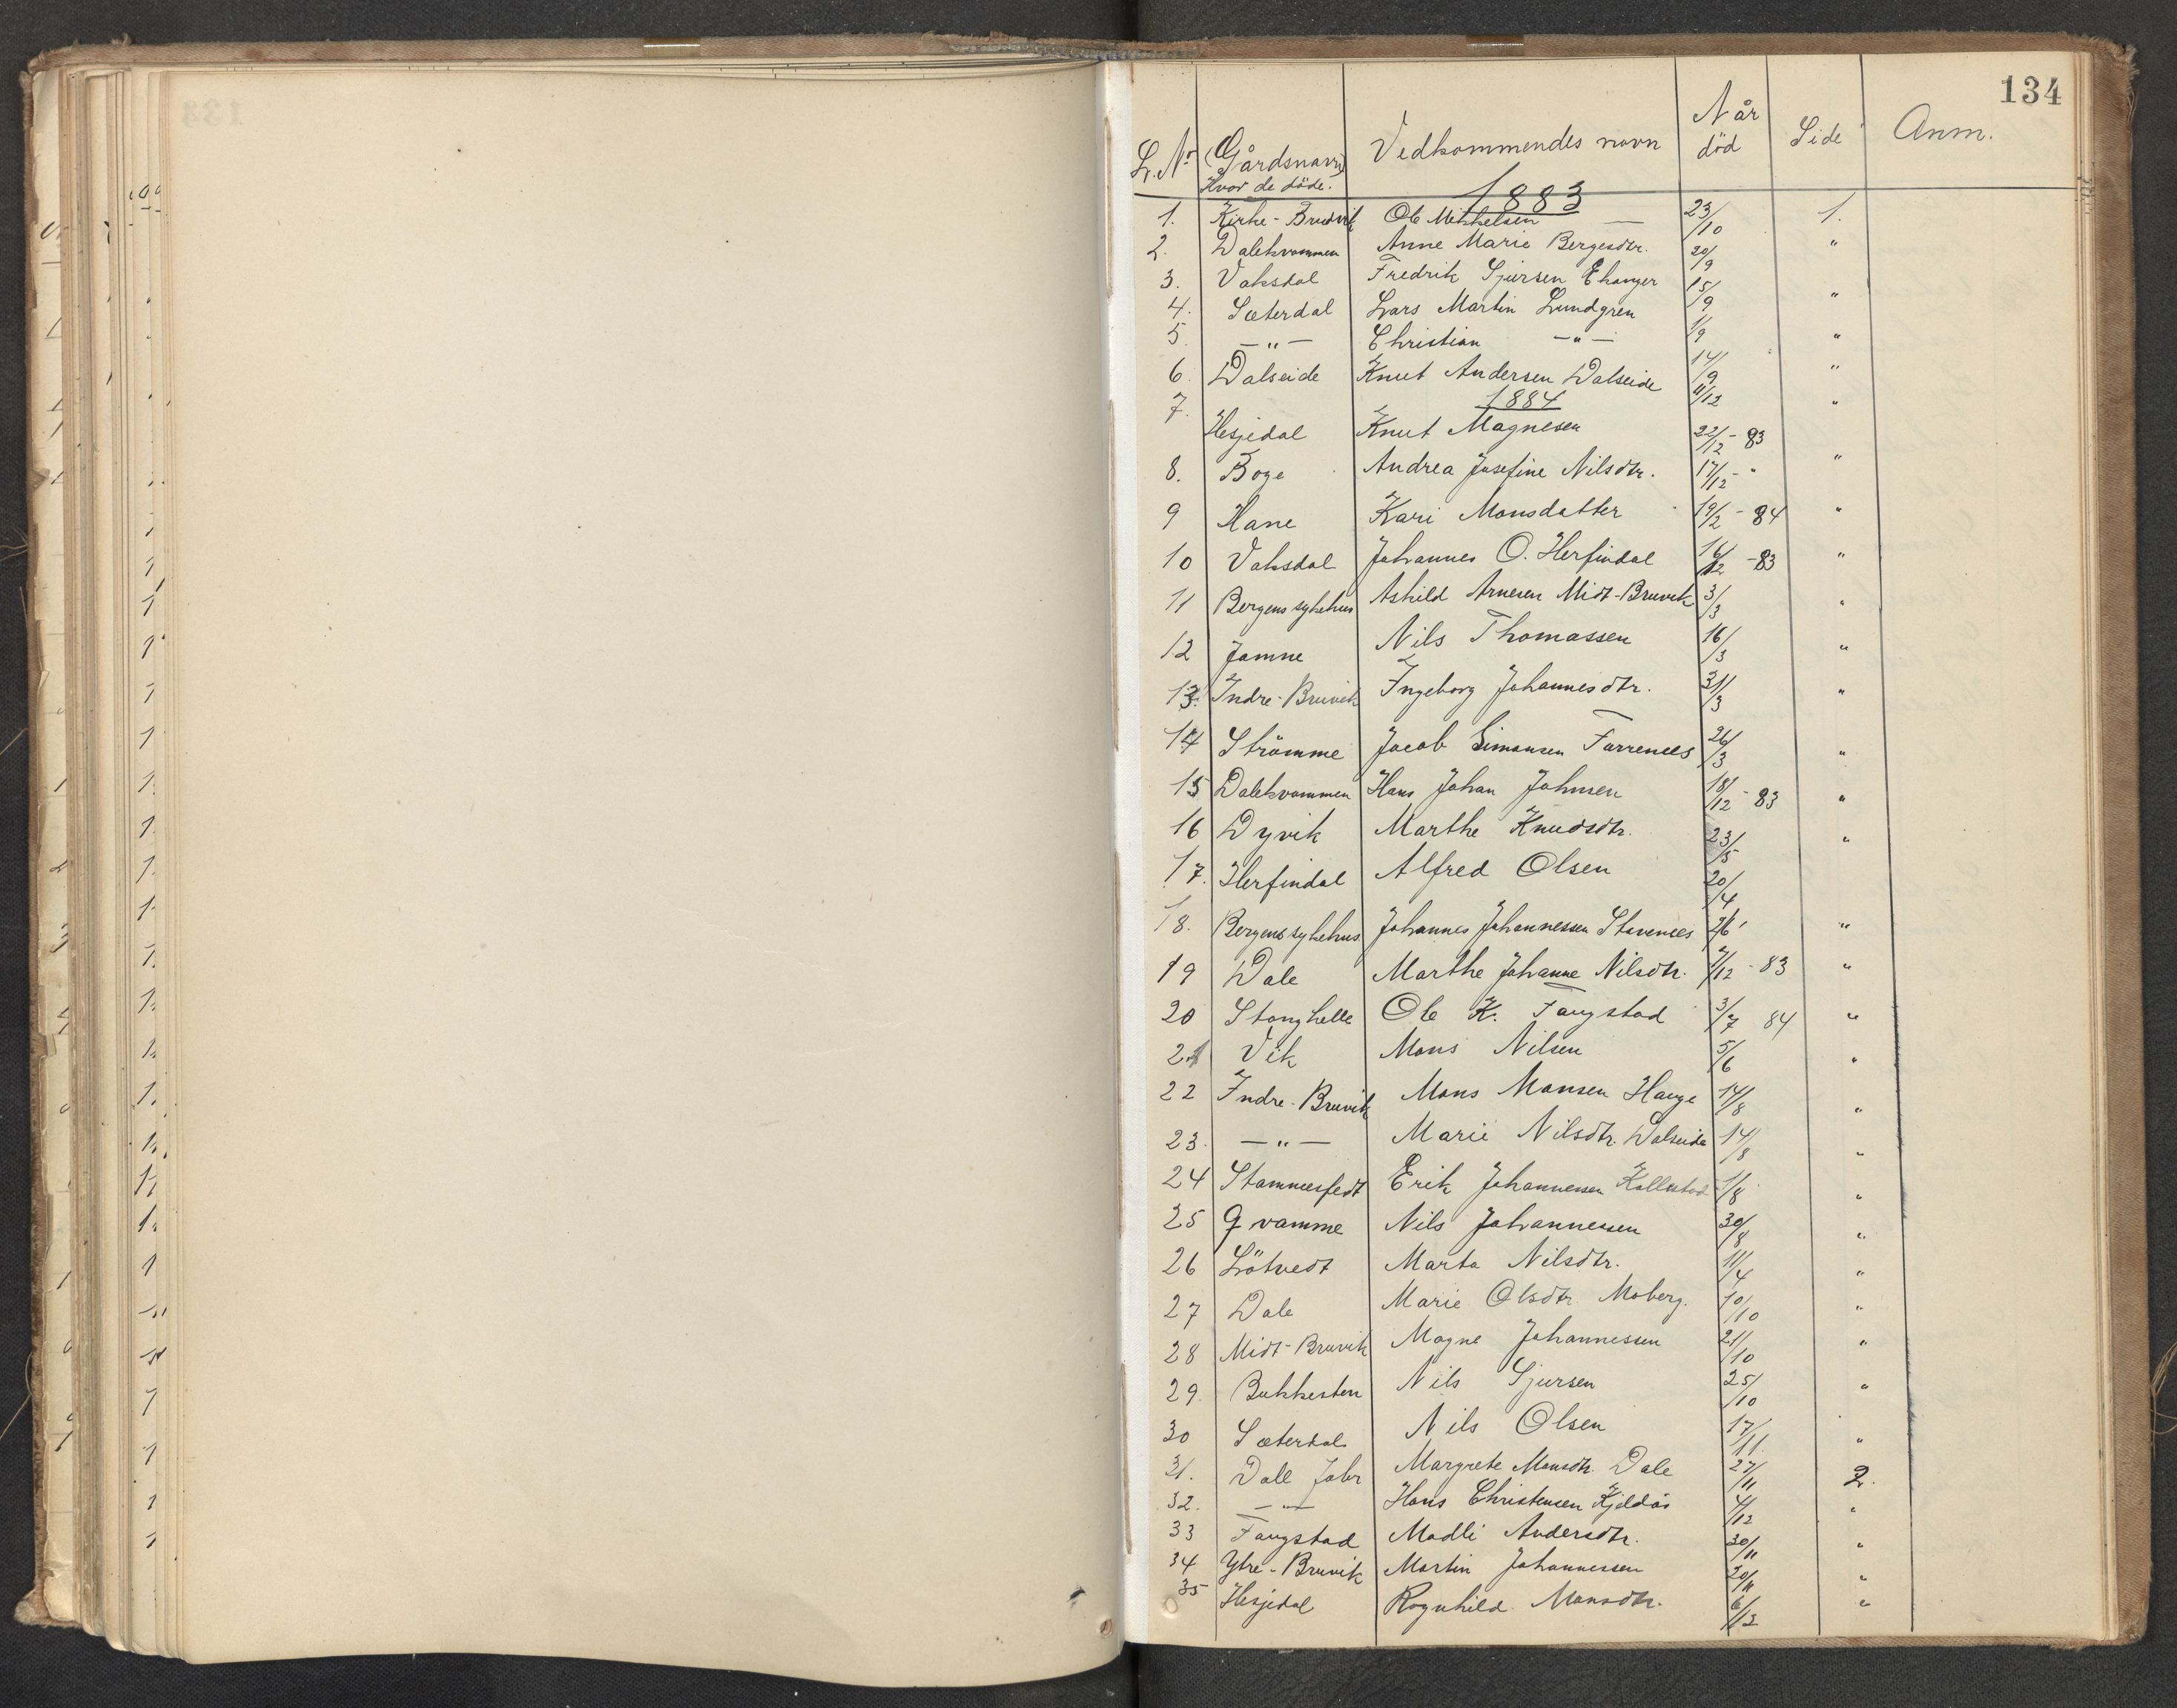 134
L. Nr. Gårdsnavn Hvor de döde. Vedkommendes navn Når död Side Anm.
1883
1. Kirke-Bruvik Ole Mikkelsen — 23/10 1.
2. Dalekvammen Anne Marie Bergesdtr. 20/9 "
3. Vaksdal Fredrik Sjursen Ekanger 15/9 "
4. Sæterdal Lars Martin Lundgren 1/9 "
5. —"— Christian —"— 14/9 "
6. Dalseide Knut Andersen Dalseide 11/12 "
1884
7. Hesjedal Knut Magnesen 22/12 - 83 "
8. Boge Andrea Josefine Nilsdtr. 17/12 - "
9 Hane Kari Monsdatter 19/2 - 84 "
10 Vaksdal Johannes O. Herfindal 16/12 - 83 "
11 Bergens sykehus Askild Arnesen Midt-Bruvik 3/3 "
12 Jamne Nils Thomassen 16/3 "
13. Indre-Bruvik Ingeborg Johannesdtr. 31/3 "
14 Strömme Jacob Simonsen Farrenes 26/3 "
15 Dalekvammen Hans Johan Johnsen 18/12 - 83 "
16 Dyvik Marthe Knudsdtr. 23/5 "
17. Herfindal Alfred Olsen 20/4
18. Bergens sykehus Johannes Johannessen Stavenes "
19 Dale Marthe Johanne Nilsdtr. 7/12 - 83 "
20 Stanghelle Ole K. Fangstad 3/7 84 "
21 Vik Mons Nilsen 5/6 "
22 Indre-Bruvik Mons Monsen Hauge 14/8 "
23. —"— Marie Nilsdtr. Dalseide 14/8 "
24 Stamnesfedt Erik Johannesen Kallestad 1/8 "
25 Qvamme Nils Johannesen 30/8 "
26 Lötvedt Marta Nilsdtr. 11/4 "
27 Dale Marie Olsdtr. Moberg. 10/10 "
28 Midt-Bruvik Magne Johannessen 21/10 "
29. Bukkesten Nils Sjursen 25/10 "
30 Sæterdal Nils Olsen 17/11. "
31. Dale Fabr Margrete Monsdtr. Dale 27/11 2.
32. —"— Hans Christensen Kjeldås 4/12 "
33 Fangstad Madli Andersdtr. 30/11 "
34 Ytre-Bruvik Martin Johannessen 20/11 "
35 Hesjedal Ragnhild Monsdtr. 6/12 "